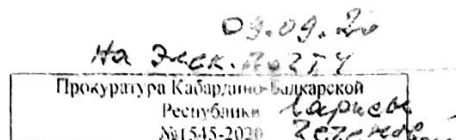 09.09.20
На элек. почту
Прокуратура Кабардино-Балкарской
Республики
№1545-2020